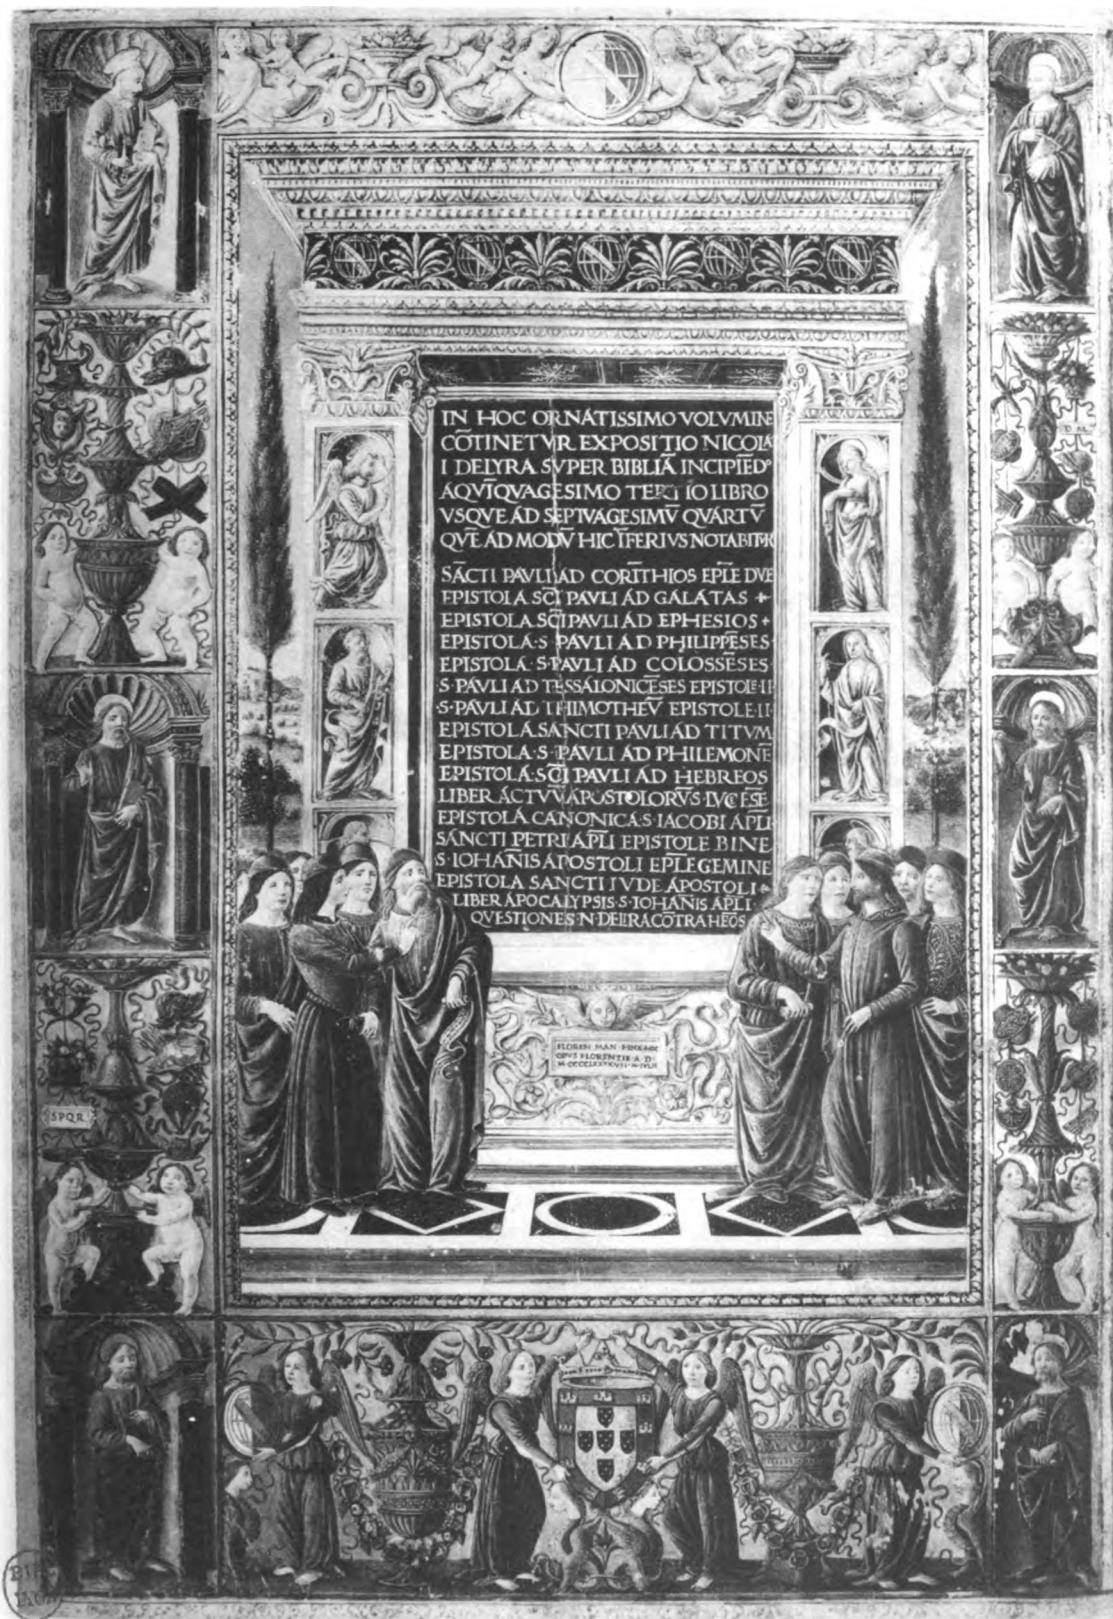 IN HOC ORNATISSIMO VOLVMINE
CŌTINETVR EXPOSITIO NICOLA
I DELYRA SVPER BIBLIĀ INCIPIĒDO
AQVĪQVAGESIMO TERTIO LIBRO
VSQVE AD SEPTVAGESIMV̄ QVARTV̄
QVĒ AD MODV̄ HIC ĪFERIVS NOTABITR
SĀCTI PAVLI AD CORĪTHIOS EPL̄E DVE
EPISTOLA SC̄I PAVLI AD GALATAS +
EPISTOLA SC̄I PAVLI AD EPHESIOS +
EPISTOLA·S·PAVLI AD PHILIPPĒSES·
EPISTOLA·S·PAVLI AD COLOSSĒSES·
S·PAVLI AD TESSALONICĒSES EPISTOLE·II
·S·PAVLI AD THIMOTHEV̄ EPISTOLE·II·
EPISTOLA SANCTI PAVLI AD TITVM
EPISTOLA·S·PAVLI AD PHILEMONĒ
EPISTOLA·SC̄I PAVLI AD HEBREOS
LIBER ACTVV̄ APOSTOLORV̄S·LVCE ĒSE
EPISTOLA CANONICA·S·IACOBI APL̄I
SANCTI PETRI APL̄I EPISTOLE BINE
·S·IOHAN̄IS APOSTOLI EPL̄E GEMINE
EPISTOLA SANCTI IVDE APOSTOLI +
LIBER APOCALYPSIS·S·IOHAN̄IS APLI·
QVESTIONES·N·DELIRA CŌTRA HEOS
OPVS FLORENTIE A D
SPQR
D M